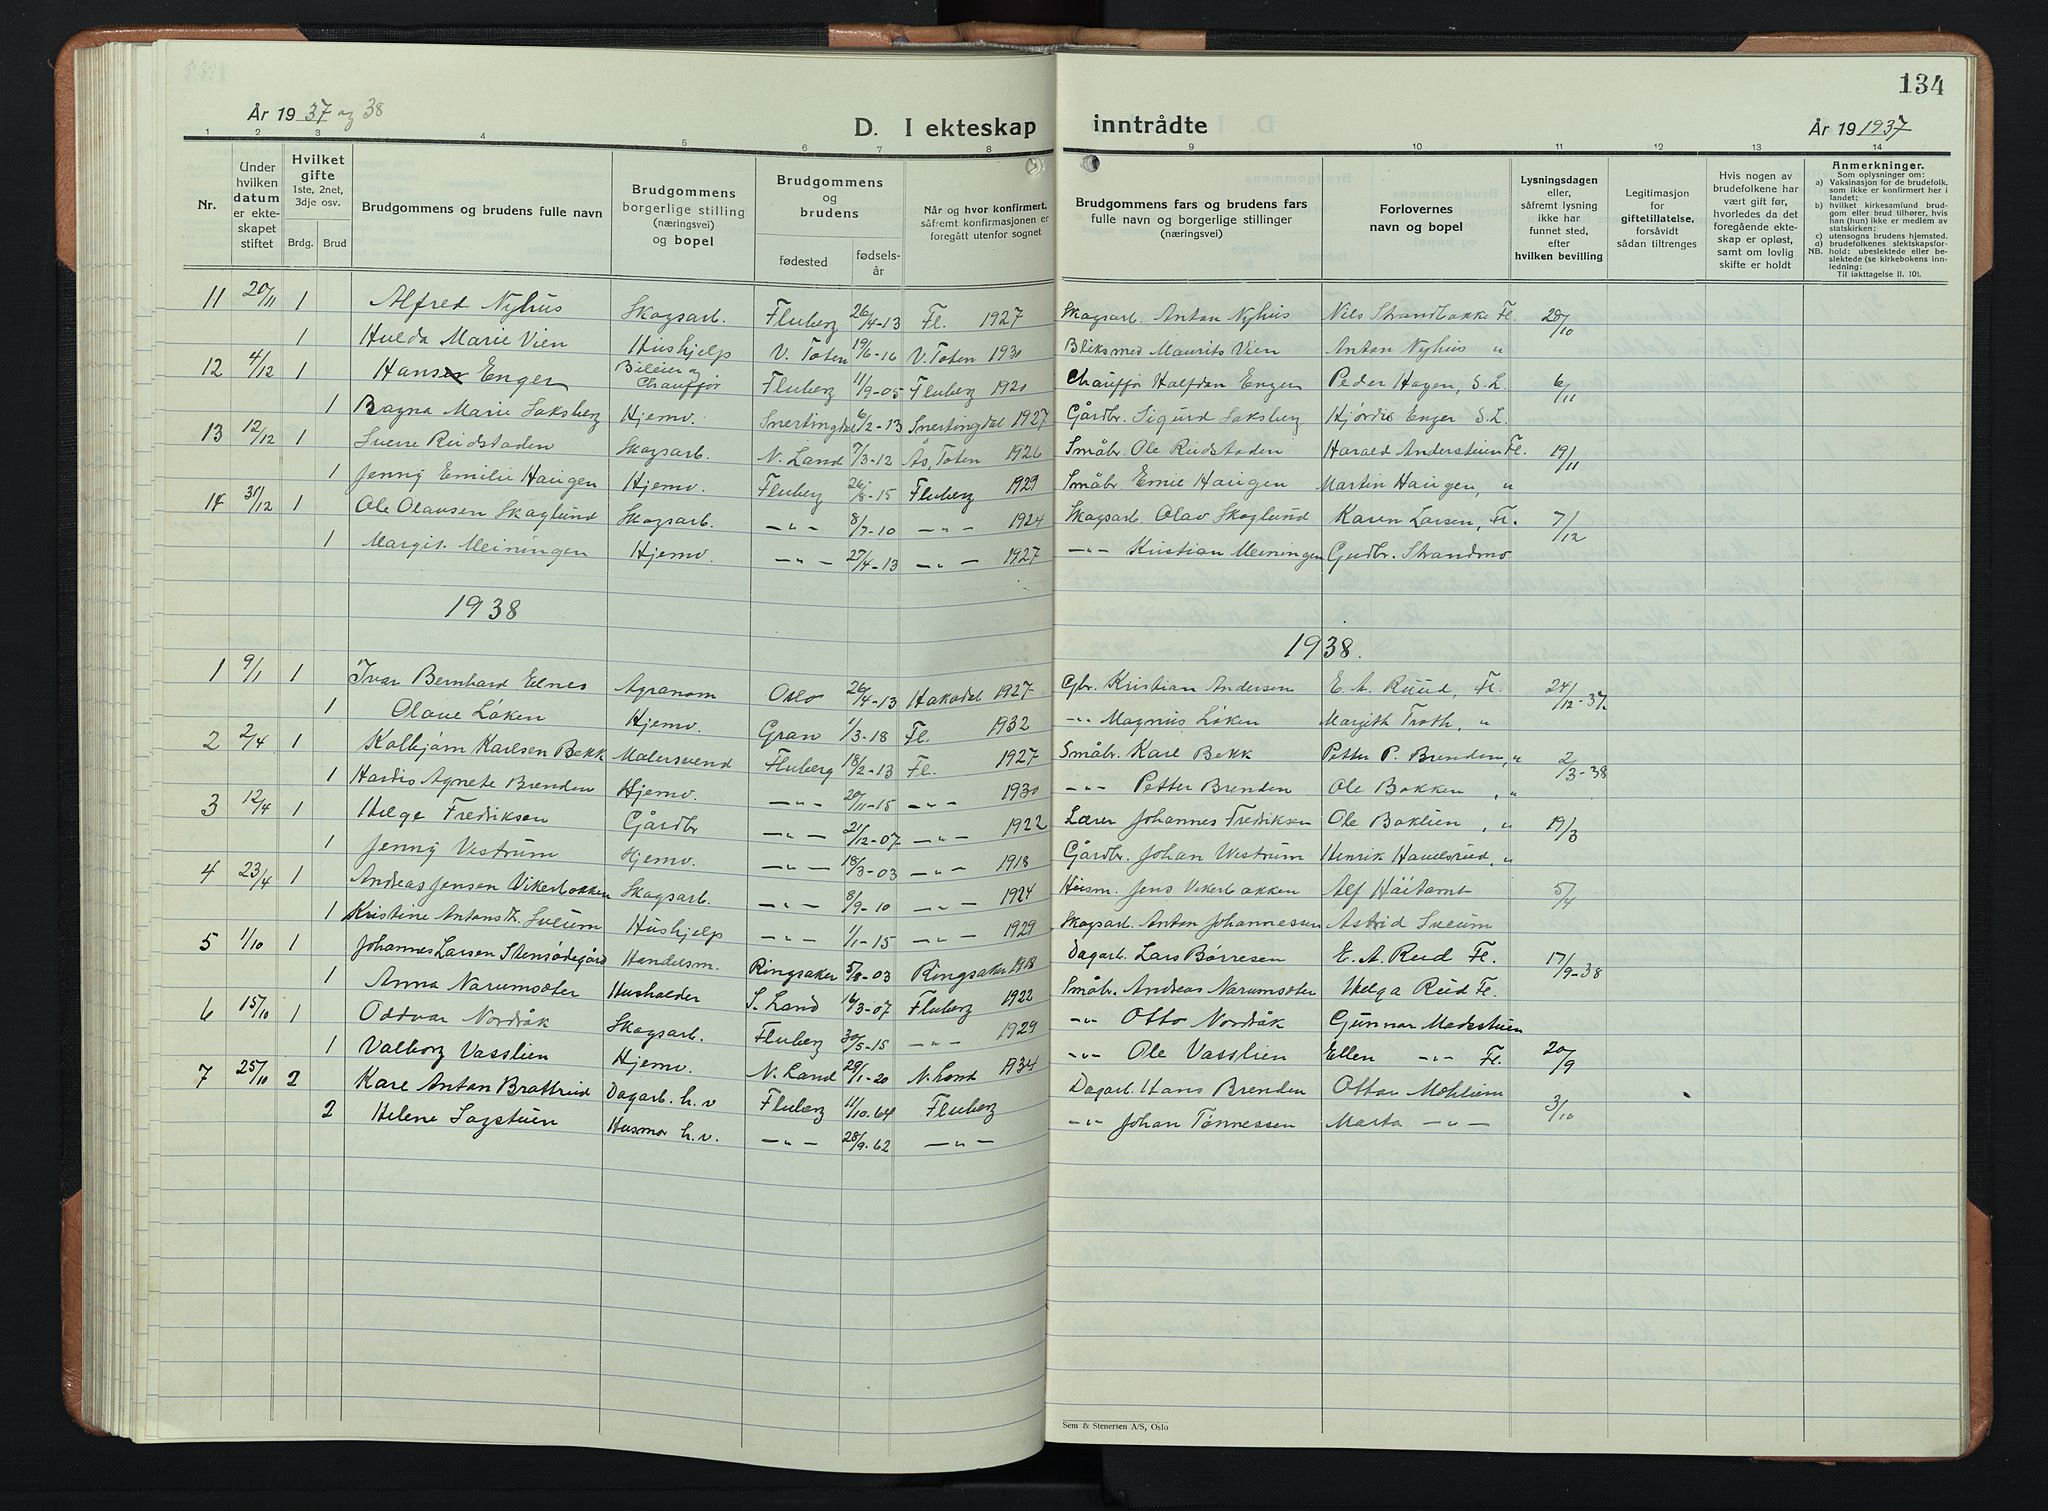 134
År 1937 og 38
D. I ekteskap inntrådte
År 191937
1 2 3 4 5 6 7 8 9 10 11 12 13 14
Nr.
Under hvilken datum er ekteskapet stiftet
Hvilket gifte 1ste, 2net, 3dje osv.
Brdg. Brud
Brudgommens og brudens fulle navn
Brudgommens borgerlige stilling (næringsvei) og bopel
Brudgommens og brudens
fødested fødselsår
Når og hvor konfirmert, såfremt konfirmasjonen er foregått utenfor sognet
Brudgommens fars og brudens fars fulle navn og borgerlige stillinger (næringsvei)
Forlovernes navn og bopel
Lysningsdagen eller, såfremt lysning ikke har funnet sted, efter hvilken bevilling
Legitimasjon for giftetillatelse, forsåvidt sådan tiltrenges
Hvis nogen av brudefolkene har vært gift før, hvorledes da det foregående ekteskap er opløst, samt om lovlig skifte er holdt
Anmerkninger.
Som oplysninger om:
a) Vaksinasjon for de brudefolk, som ikke er konfirmert her i landet;
b) hvilket kirkesamfund brudgom eller brud tilhører, hvis han (hun) ikke er medlem av statskirken;
c) utensogns brudens hjemsted.
d) brudefolkenes slektskapsforhold: ubeslektede eller beslektede (se kirkebokens innledning:
NB.
Til iakttagelse II. 10).
11 20/11 1 Alfred Nyhus Skogsarb. Fluberg 26/4-13 Fl. 1927 Skogsarb. Anton Nyhus Nils Strandbakke Fl. 28/10
1 Hulda Marie Vien Hushjelp V. Toten 19/6-16 V. Toten 1930 Bliksmed Maurits Vien Anton Nyhus "
12 4/12 1 Hans Enger Bileier og Chauffør Fluberg 11/9-05 Fluberg 1920 Chauffør Halfdan Enger Peder Hagen, S. L. 6/11
1 Bagna Marie Saksberg Hjemv. Snertingdal 6/2-13 Snertingdal 1927 Gårdbr. Sigurd Saksberg Hjørdis Enger S. L.
13 12/12 1 Sverre Rudstaden Skogsarb. N. Land 7/3-12 Ås, Toten 1926 Småbr. Ole Rudstaden Harald Anderstuen Fl. 19/11
1 Jenny Emilie Haugen Hjemv. Fluberg 26/8-15 Fluberg 1929 Småbr. Emil Haugen Martin Haugen, "
14 31/12 1 Ole Olausen Skoglund Skogsarb. -"- 8/7-10 -"- 1924 Skogsarb. Olav Skoglund Karen Larsen, Fl. 7/12
1 Margit Meiningen Hjemv. -"- 27/4-13 -"- 1927 -"- Kristian Meiningen Gudbr. Strandmo
1938
1938.
1 9/1 1 Ivar Bernhard Elnes Agronom Oslo 26/4-13 Hakadal 1927 Gbr. Kristian Andersen E. A. Ruud, Fl. 24/12-37.
1 Olaue Løken Hjemv. Gran 1/3-18 Fl. 1932 -"- Magnus Løken Margith Troth, "
2 2/4 1 Kolbjørn Karlsen Bekk Malersvend Fluberg 18/2-13 Fl. 1927 Småbr. Karl Bekk Petter P. Brenden, " 2/3-38
1 Hardis Agnete Brenden Hjemv. -"- 20/11-15 -"- 1930 -"- Petter Brenden Ole Bakken, "
3 12/4 1 Helge Fredriksen Gårdbr -"- 21/12-07 -"- 1922 Lærer Johannes Fredriksen Ole Baklien, " 19/3
1 Jenny Vestrum Hjemv. -"- 18/3-03 -"- 1918 Gårdbr. Johan Westrum Henrik Havelsrud, "
4 23/4 1 Andreas Jensen Vikerbakken Skogsarb. -"- 8/9-10 -"- 1924 Husm. Jens Vikerbakken Alf Håitomt 5/4
1 Kristine Antonsd. Sveum Hushjelp -"- 1/1-15 -"- 1929 Skogsarb. Anton Johannessen Astrid Sveum
5 1/10 1 Johannes Larsen Stensødegård Handelsm. Ringsaker 5/8-03 Ringsaker 1918 Dagarb. Lars Børresen E. A. Rud Fl. 17/9-38
1 Anna Narumsæter Husholder S. Land 16/3-07 Fluberg 1922 Småbr. Andreas Narumsæter Helga Rud Fl.
6 15/10 1 Oddvar Nordråk Skogsarb. Fluberg 30/5-15 -"- 1929 -"- Otto Nordråk Gunnar Madsstuen
1 Valborg Vasslien Hjemv. N. Land 29/1-20 N. Land 1934 -"- Ole Vasslien Ellen -"- Fl. 20/9
7 25/10 2 Karl Anton Brattrud Dagarb. h. v Fluberg 11/10-64 Fluberg Dagarb. Hans Brenden Ottar Mohlien 3/10
2 Helene Sagstuen Husmor h.v. -"- 28/9-62 -"- -"- Johan Tønnessen Marta -"-
Sem & Stenersen A/S, Oslo